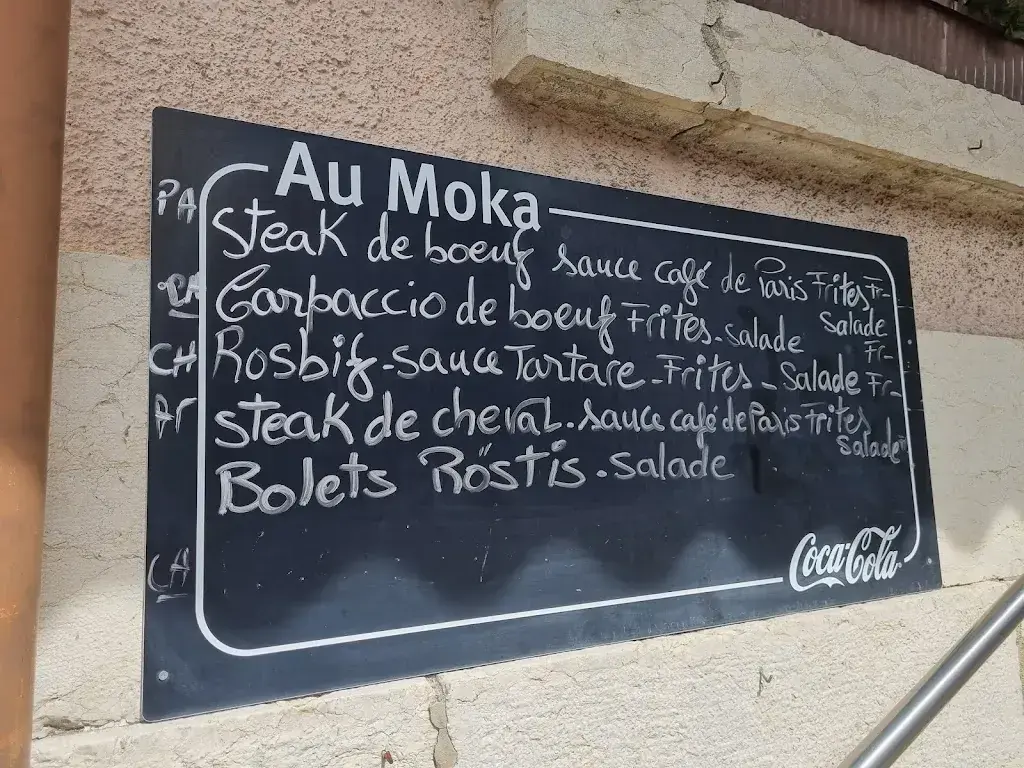 Au Moka
PA
Steak de boeuf sauce café de Paris Frites Fr-
Salade
CA
Carpaccio de boeuf Frites-salade
Fr-
CH
Rosbif-sauce Tartare-Frites-Salade Fr-
steak de cheval-sauce café de Paris Frites
Salade
Bolets Röstis-salade
CA
Coca-Cola